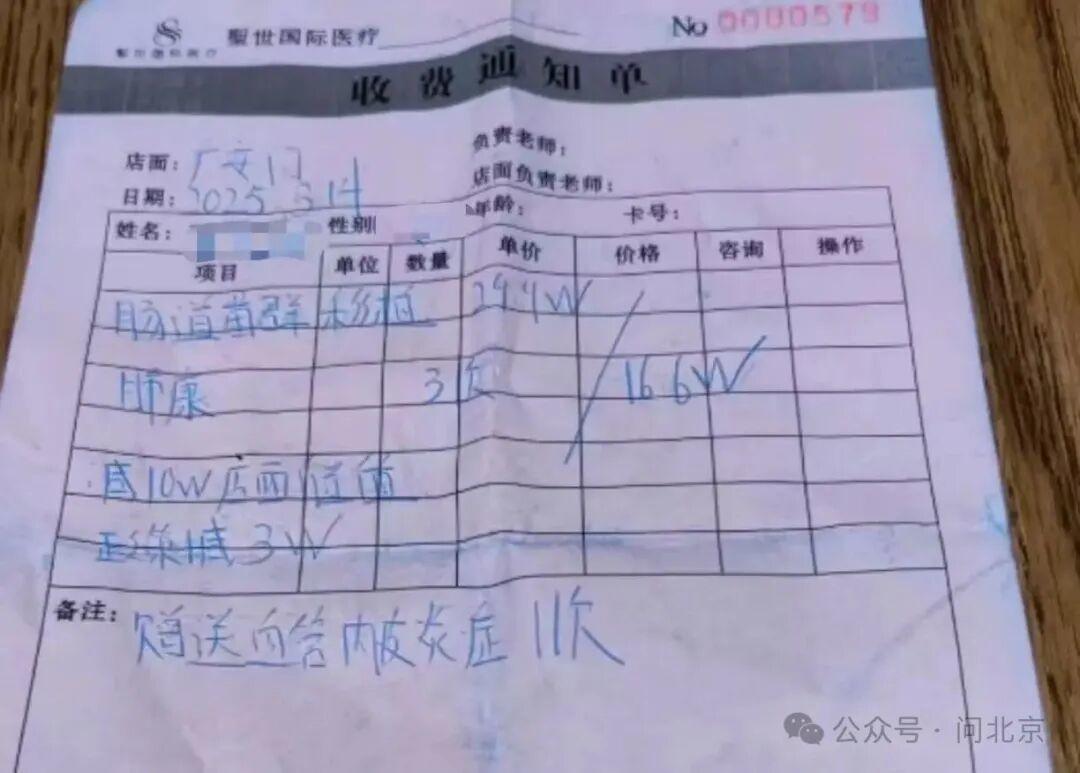 聖世国际医疗 聖世国际医疗 No 0000579
收费通知单
店面: 广安门 负责老师:
日期: 2025.3.14 店面负责老师:
姓名: 性别 年龄: 卡号:
项目 单位 数量 单价 价格 咨询 操作
肠道菌群移植 29.4W
肺康 3次 16.6W
减10W店面
政策减3W
备注: 赠送血管内皮炎症11次
公众号·问北京